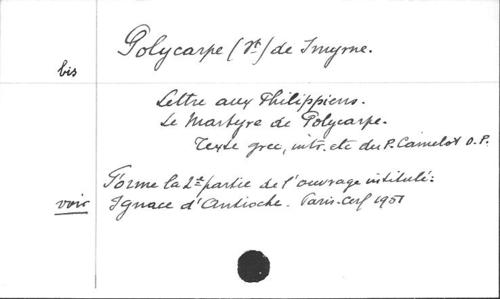 Polycarpe (St) de Smyrne.
bis
Lettre aux Philippiens.
Le Martyre de Polycarpe.
Texte grec, intr. etc du P. Camelot O.P.
Forme la 2e partie de l'ouvrage intitulé:
voir Ignace d'Antioche. Paris. Cerf 1951